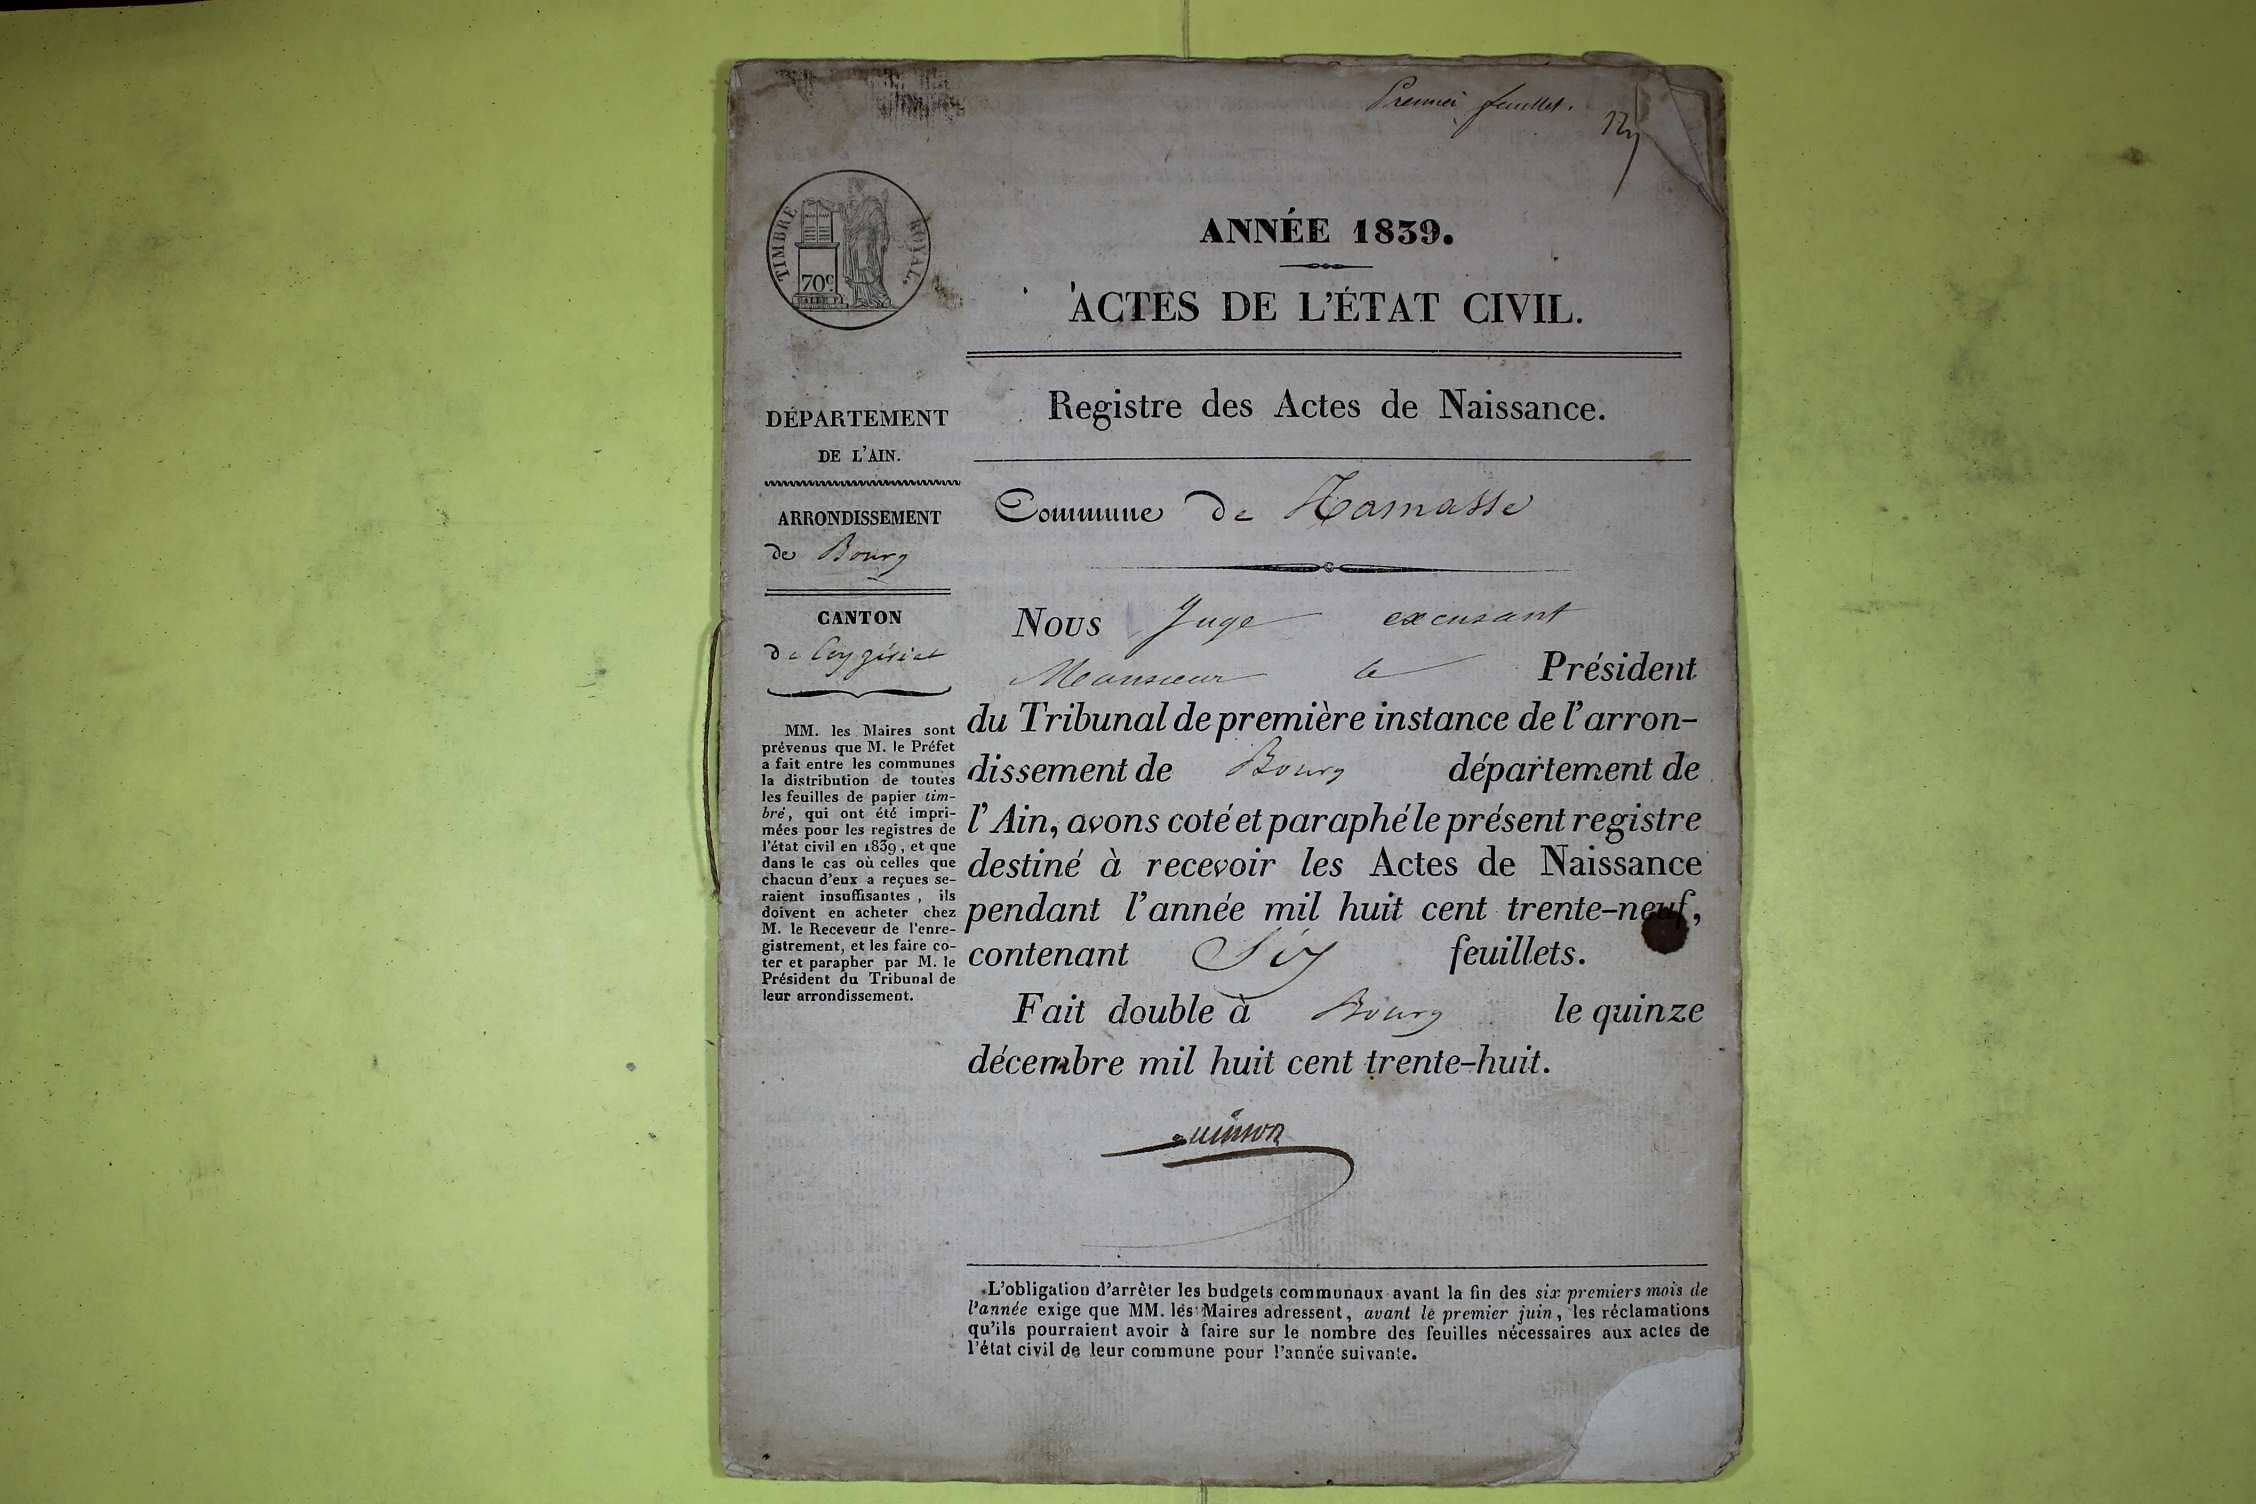 Premier feuillet.
TIMBRE ROYAL.
70c
ANNÉE 1839.
ACTES DE L'ÉTAT CIVIL.
Registre des Actes de Naissance.
DÉPARTEMENT
DE L'AIN.
ARRONDISSEMENT
de Bourg
CANTON
de Ceyzériat
MM. les Maires sont
prévenus que M. le Préfet
a fait entre les communes
la distribution de toutes
les feuilles de papier tim-
bré, qui ont été impri-
mées pour les registres de
l'état civil en 1839, et que
dans le cas où celles que
chacun d'eux a reçues se-
raient insuffisantes, ils
doivent en acheter chez
M. le Receveur de l'enre-
gistrement, et les faire co-
ter et parapher par M. le
Président du Tribunal de
leur arrondissement.
Commune de Ramasse
Nous Juge excusant
Monsieur le Président
du Tribunal de première instance de l'arron-
dissement de Bourg département de
l'Ain, avons coté et paraphé le présent registre
destiné à recevoir les Actes de Naissance
pendant l'année mil huit cent trente-neuf,
contenant Six feuillets.
Fait double à Bourg le quinze
décembre mil huit cent trente-huit.
L'obligation d'arrêter les budgets communaux avant la fin des six premiers mois de
l'année exige que MM. les Maires adressent, avant le premier juin, les réclamations
qu'ils pourraient avoir à faire sur le nombre des feuilles nécessaires aux actes de
l'état civil de leur commune pour l'année suivante.